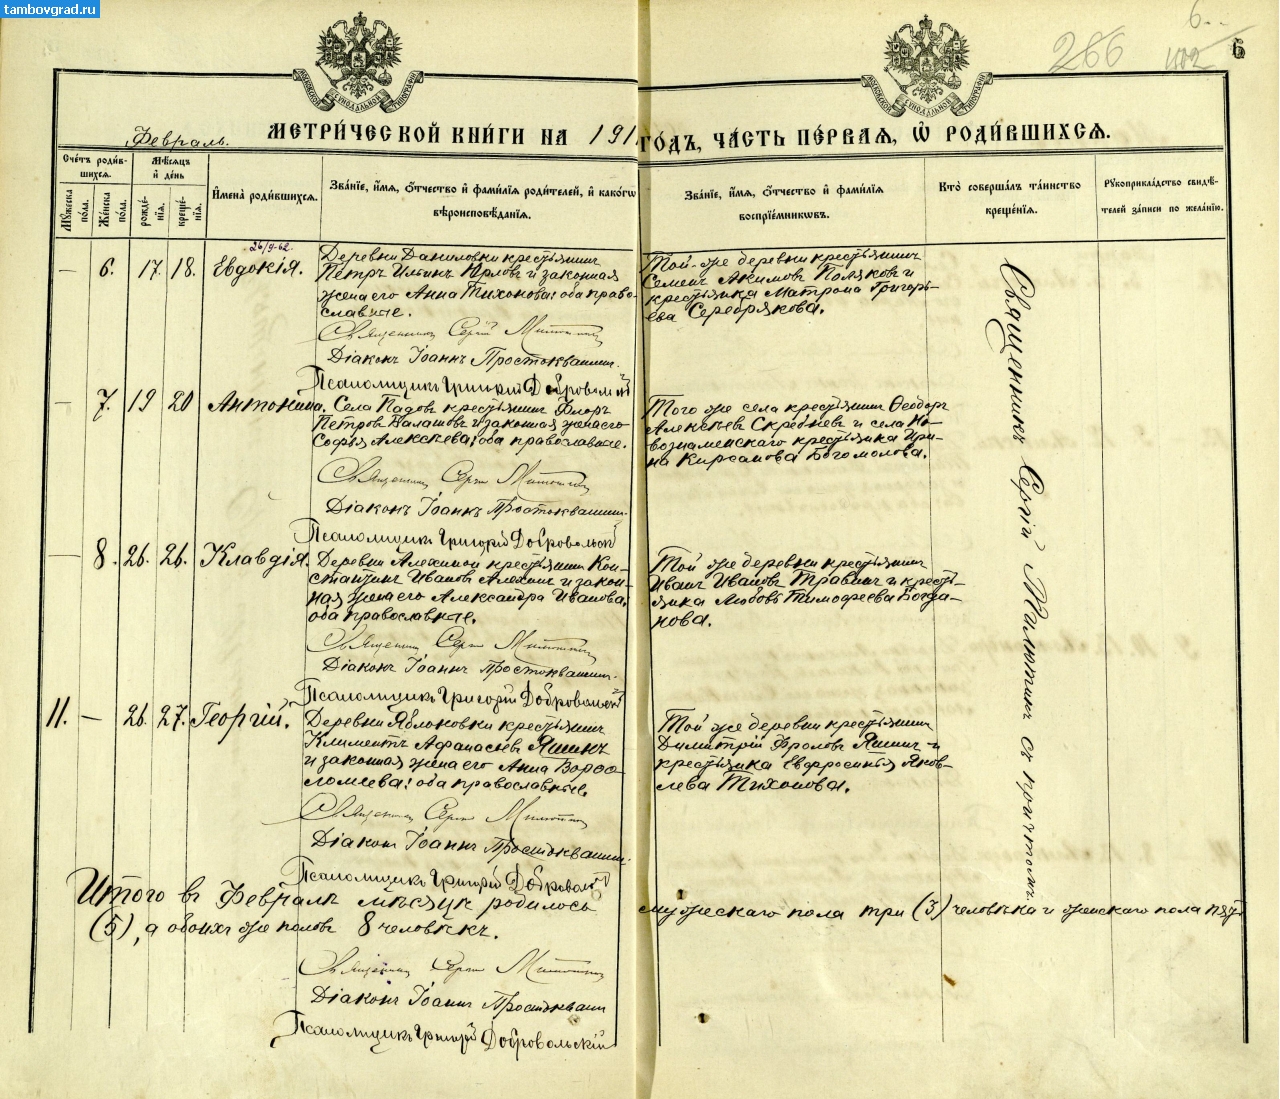 tambovgrad.ru
6..
266
402
6
МОСКОВСКОЙ СѴНОДАЛЬНОЙ ТИПОГРАФІИ
МОСКОВСКОЙ СѴНОДАЛЬНОЙ ТИПОГРАФІИ
Февраль.
МЕТРИ́ЧЕСКОЙ КНИ́ГИ НА 191
ГО́ДЪ, ЧА́СТЬ ПЕ́РВАЯ, Ѡ РОДИ́ВШИХСЯ.
Сче́тъ роди́в-
шихся.
Му́жеска по́ла.
Же́нска по́ла.
Мѣ́сяцъ
и҆ де́нь
рожде́-
нїя.
креще́-
нїя.
И҆мена̀ роди́вшихся.
Зва́нїе, и҆́мя, ѻ҆́тчество и҆ фами́лїя роди́телей, и҆ како́гѡ
вѣроисповѣ́данїя.
Зва́нїе, и҆́мя, ѻ҆́тчество и҆ фами́лїя
воспрїе́мникѡвъ.
Кто̀ соверша́лъ та́инство
креще́нїя.
Рꙋкоприкла́дство свидѣ́-
телей за́писи по жела́нїю.
26/9-62.
— 6. 17. 18. Евдокія.
Деревни Даниловки крестьянинъ
Петръ Ильинъ Орловъ и законная
жена его Анна Тихонова: оба право-
славные.
Священникъ Сергій
Діаконъ Іоаннъ Простоквашинъ.
Псаломщикъ Григорій Добровольскій
Той-же деревни крестьянинъ
Семенъ Акимовъ Поляковъ и
крестьянка Матрона Григорь-
ева Серебрякова.
— 7. 19 20 Антонина.
Села Падовъ крестьянинъ Флоръ
Петровъ Балашовъ и законная жена его
Софья Алексеева: оба православные.
Священникъ Сергій
Діаконъ Іоаннъ Простоквашинъ.
Псаломщикъ Григорій Добровольскій
Того же села крестьянинъ Ѳеодоръ
Алексѣевъ Скребневъ и села Но-
вознаменскаго крестьянка Ири-
на Кирсанова Богомолова.
— 8. 26. 26. Клавдія.
Деревни Алехиной крестьянинъ Кон-
стантинъ Ивановъ Алехинъ и закон-
ная жена его Александра Иванова:
оба православные.
Священникъ Сергій
Діаконъ Іоаннъ Простоквашинъ.
Псаломщикъ Григорій Добровольскій
Той же деревни крестьянинъ
Иванъ Ивановъ Травинъ и кресть-
янка Любовь Тимофеева Богда-
нова.
11. — 26. 27. Георгій.
Деревни Яблоновки крестьянинъ
Климентъ Афанасьевъ Яшинъ
и законная жена его Анна Варѳо-
ломеева: оба православные.
Священникъ Сергій
Діаконъ Іоаннъ Простоквашинъ.
Псаломщикъ Григорій Добровольскій
Той же деревни крестьянинъ
Димитрій Фроловъ Яшинъ и
крестьянка Евфросинья Яков-
лева Тихонова.
Священникъ Сергій съ причтомъ.
Итого въ Февралѣ мѣсяцѣ родилось мужескаго пола три (3) человѣка и женскаго пола пять
(5), а обоихъ же половъ 8 человѣкъ.
Священникъ Сергій
Діаконъ Іоаннъ Простоквашинъ
Псаломщикъ Григорій Добровольскій